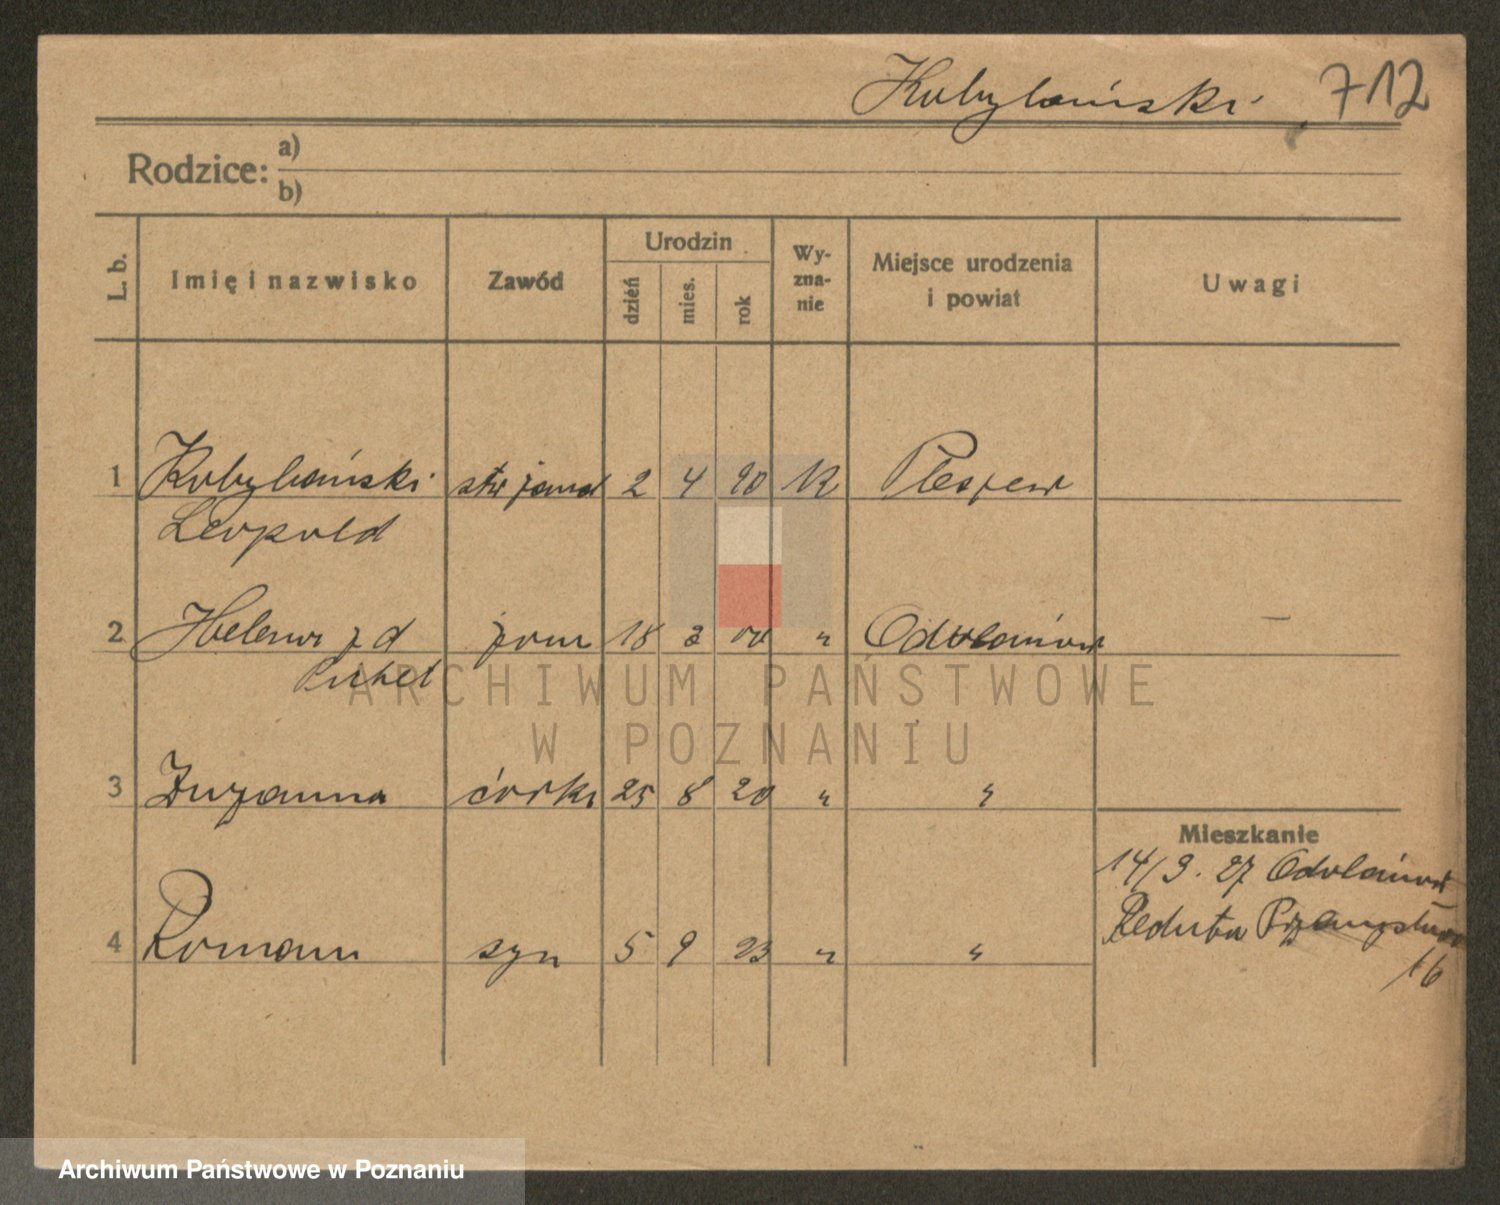 Kobylański 712
Rodzice: a)
b)
L. b. Imię i nazwisko Zawód Urodzin dzień mies. rok Wyznanie Miejsce urodzenia i powiat Uwagi
1 Kobylański 2 4 90 K Pleszew
Leopold
2 Helena z d żona 18 2 00 " Odolanów —
3 Zuzanna córka 25 8 20 " "
Mieszkanie
14/9. 27 Odolanów
Reduta
4 Roman syn 5 9 23 " "
16
ARCHIWUM PAŃSTWOWE
W POZNANIU
Archiwum Państwowe w Poznaniu